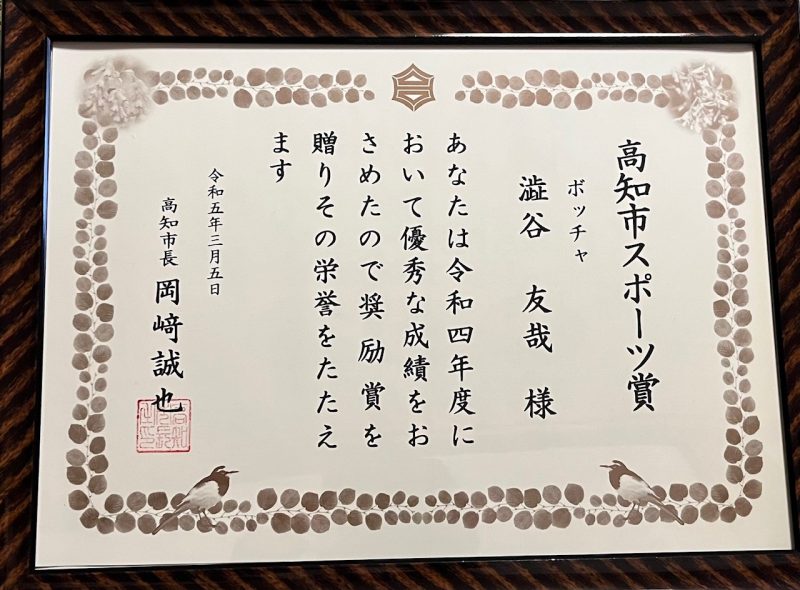 高知市スポーツ賞
ボッチャ
澁谷 友哉 様
あなたは令和四年度に
おいて優秀な成績をお
さめたので奨励賞を
贈りその栄誉をたたえ
ます
令和五年三月五日
高知市長 岡﨑誠也